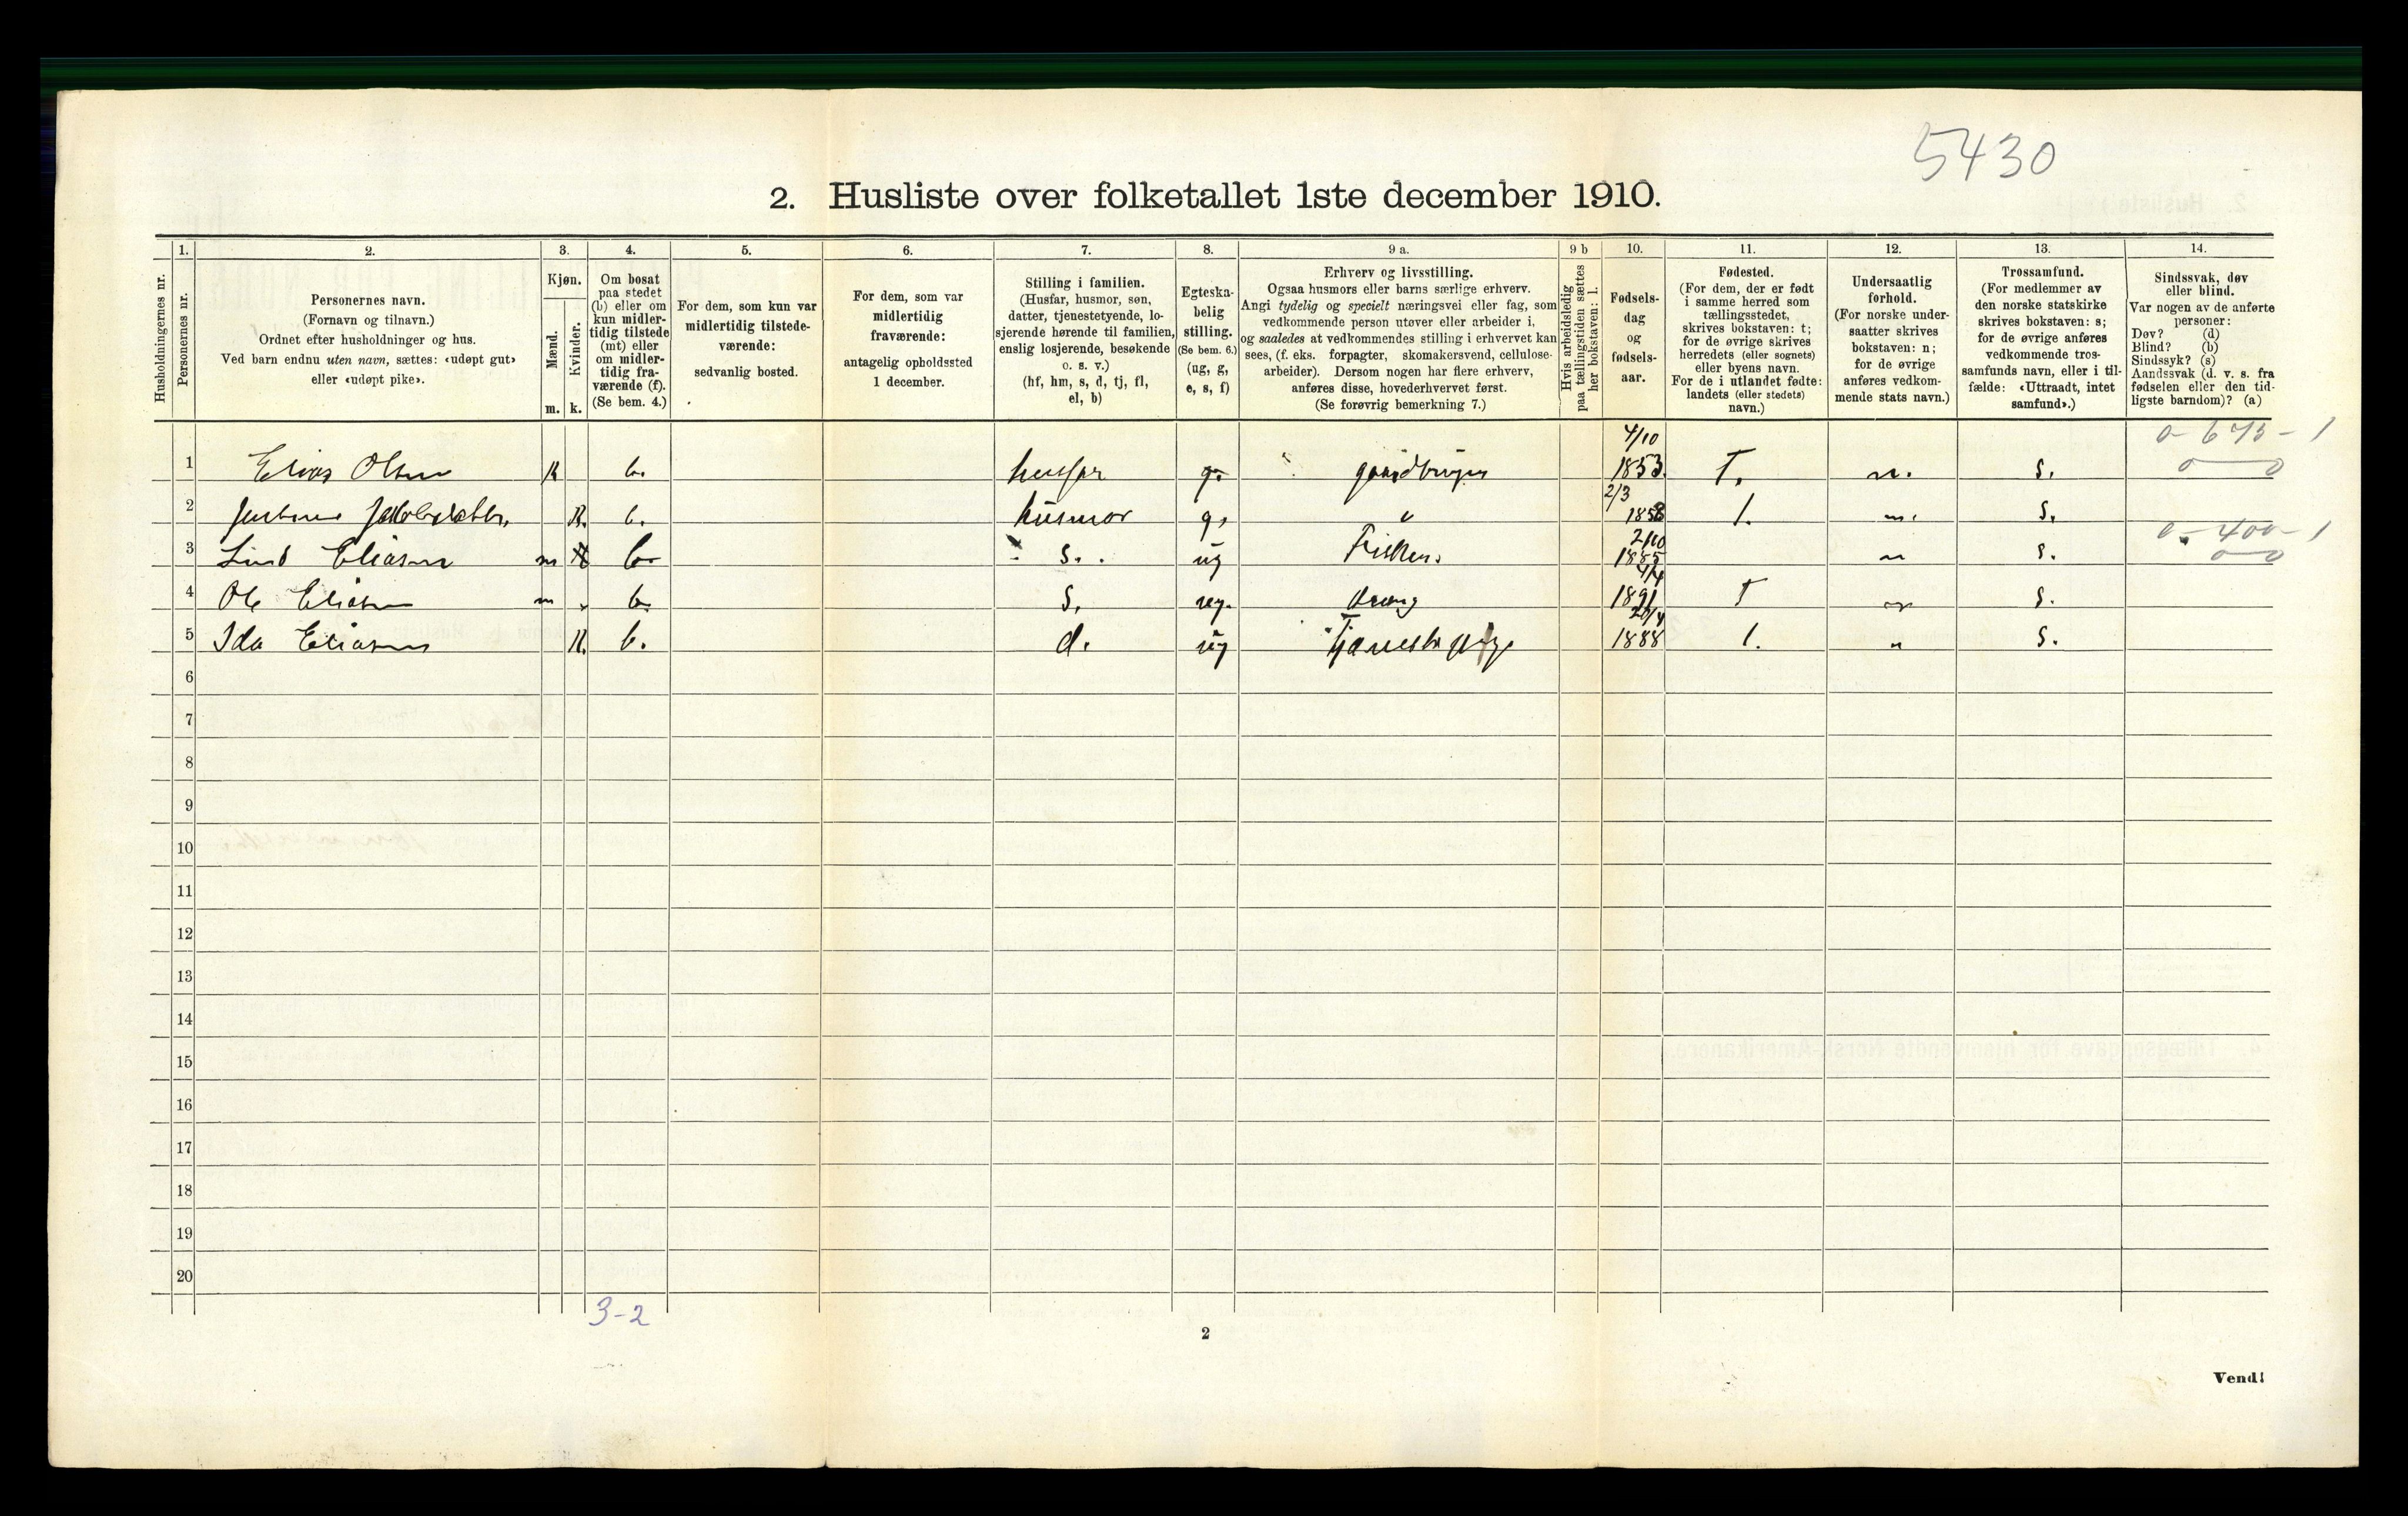 5430
2. Husliste over folketallet 1ste december 1910.
Husholdningernes nr.
1.
Personernes nr.
2.
Personernes navn.
(Fornavn og tilnavn.)
Ordnet efter husholdninger og hus.
Ved barn endnu uten navn, sættes: «udøpt gut»
eller «udøpt pike».
3.
Kjøn.
Mænd.
m.
Kvinder.
k.
4.
Om bosat
paa stedet
(b) eller om
kun midler-
tidig tilstede
(mt) eller
om midler-
tidig fra-
værende (f).
(Se bem. 4.)
5.
For dem, som kun var
midlertidig tilstede-
værende:
sedvanlig bosted.
6.
For dem, som var
midlertidig
fraværende:
antagelig opholdssted
1 december.
7.
Stilling i familien.
(Husfar, husmor, søn,
datter, tjenestetyende, lo-
sjerende hørende til familien,
enslig losjerende, besøkende
o. s. v.)
(hf, hm, s, d, tj, fl,
el, b)
8.
Egteska-
belig
stilling.
(Se bem. 6.)
(ug, g,
e, s, f)
9 a.
Erhverv og livsstilling.
Ogsaa husmors eller barns særlige erhverv.
Angi tydelig og specielt næringsvei eller fag, som
vedkommende person utøver eller arbeider i,
og saaledes at vedkommendes stilling i erhvervet kan
sees, (f. eks. forpagter, skomakersvend, cellulose-
arbeider). Dersom nogen har flere erhverv,
anføres disse, hovederhvervet først.
(Se forøvrig bemerkning 7.)
9 b
Hvis arbeidsledig
paa tællingstiden sættes
her bokstaven: l.
10.
Fødsels-
dag
og
fødsels-
aar.
11.
Fødested.
(For dem, der er født
i samme herred som
tællingsstedet,
skrives bokstaven: t;
for de øvrige skrives
herredets (eller sognets)
eller byens navn.
For de i utlandet fødte:
landets (eller stedets)
navn.)
12.
Undersaatlig
forhold.
(For norske under-
saatter skrives
bokstaven: n;
for de øvrige
anføres vedkom-
mende stats navn.)
13.
Trossamfund.
(For medlemmer av
den norske statskirke
skrives bokstaven: s;
for de øvrige anføres
vedkommende tros-
samfunds navn, eller i til-
fælde: «Uttraadt, intet
samfund».)
14.
Sindssvak, døv
eller blind.
Var nogen av de anførte
personer:
Døv? (d)
Blind? (b)
Sindssyk? (s)
Aandssvak (d. v. s. fra
fødselen eller den tid-
ligste barndom)? (a)
4/10
1 Elias Olsen b. husfar g. 1853 T. n. s.
2/3
2 b. husmor g. 1858 s.
0-400-1
2/10
3 Eliasen m b. s. ug Fisker. 1885 n s.
4/4
4 Ole Eliasen m b. s. ug. dreng 1891 T s.
5 Ida Eliasen K. b. d. ug 1888 s.
6
7
8
9
10
11
12
13
14
15
16
17
18
19
20
3-2
2
Vend!